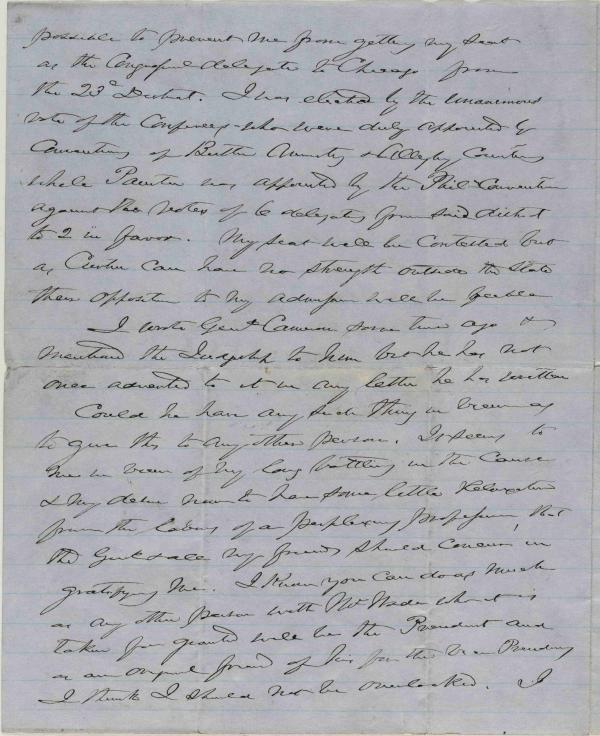 possible to prevent me from getting my seat
as the Congressl delegate to Chicago from
the 23d District. I was elected by the unanimous
vote of the Conferees who were duly appointed by
Conventions of Butler Armstg & Allegheny Counties
while Painter was appointed by the Phil Convention
against the votes of 6 delegates from said district
to 2 in favor. My seat will be contested but
as Curtin can have no strength outside the State
their opposition to my admission will be feeble
I wrote Genl Cameron some time ago &
mentioned the to him but he has not
once adverted to it in any letter he has written
Could he have any such thing in view as
to give this to any other person. It seems to
me in view of my long battling in the Cause
& my desire now to have some little relaxation
from the labors of a perplexing profession, that
the Genl & all my friends should concur in
gratifying me. I know you can do as much
as any other person with Mr Wade who it is
taken for granted will be the President and
as an original friend of his for the Vice Presidency
I think I should not be overlooked. I